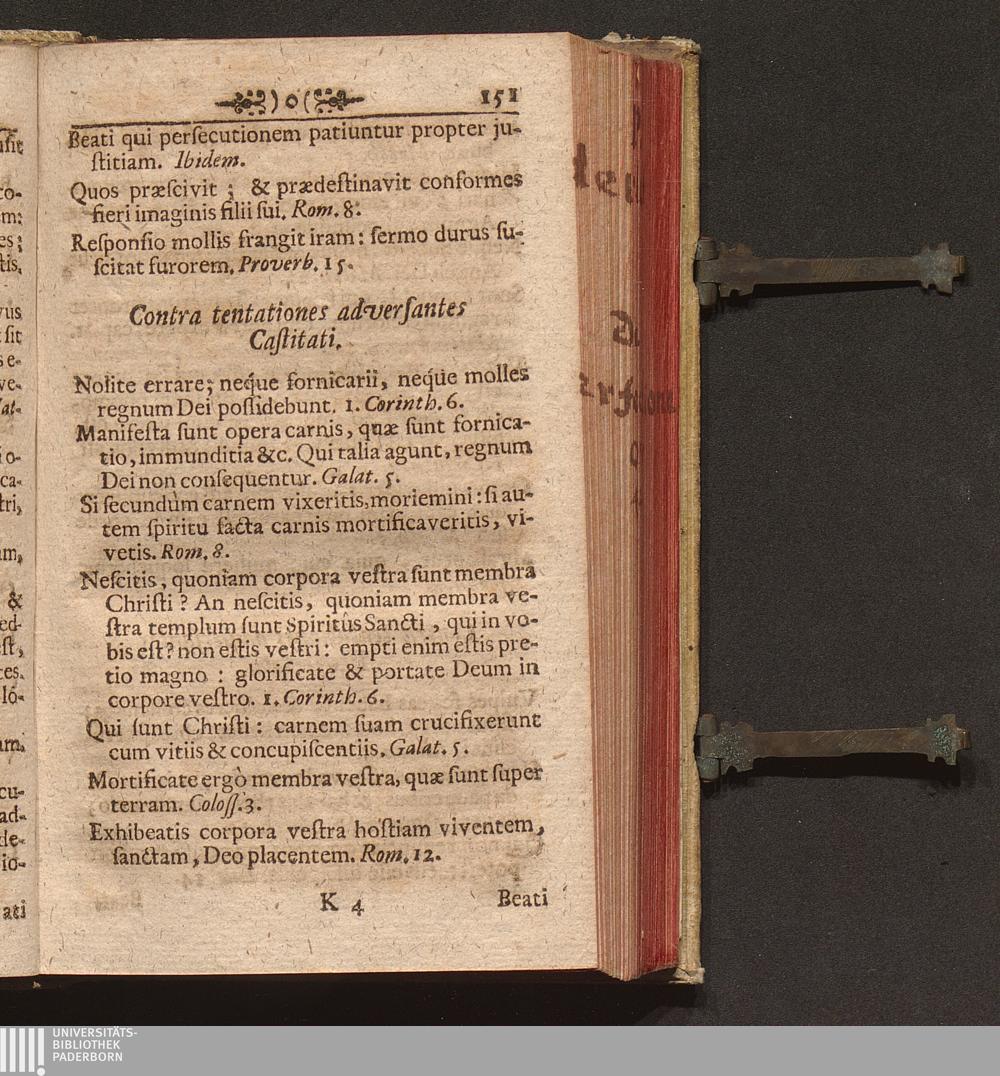 )o( 151
Beati qui perſecutionem patiuntur propter ju-
ſtitiam. Ibidem.
Quos præſcivit; & prædeſtinavit conformes
fieri imaginis filii ſui. Rom. 8.
Reſponſio mollis frangit iram: ſermo durus ſu-
ſcitat furorem. Proverb. 15.
Contra tentationes adverſantes
Caſtitati.
Nolite errare; neque fornicarii, neque molles
regnum Dei poſſidebunt. 1. Corinth. 6.
Manifeſta ſunt opera carnis, quæ ſunt fornica-
tio, immunditia &c. Qui talia agunt, regnum
Dei non conſequentur. Galat. 5.
Si ſecundùm carnem vixeritis, moriemini: ſi au-
tem ſpiritu facta carnis mortificaveritis, vi-
vetis. Rom. 8.
Neſcitis, quoniam corpora veſtra ſunt membra
Chriſti? An neſcitis, quoniam membra ve-
ſtra templum ſunt Spiritûs Sancti, qui in vo-
bis eſt? non eſtis veſtri: empti enim eſtis pre-
tio magno: glorificate & portate Deum in
corpore veſtro. 1. Corinth. 6.
Qui ſunt Chriſti: carnem ſuam crucifixerunt
cum vitiis & concupiſcentiis. Galat. 5.
Mortificate ergò membra veſtra, quæ ſunt ſuper
terram. Coloſſ. 3.
Exhibeatis corpora veſtra hoſtiam viventem,
ſanctam, Deo placentem. Rom. 12.
K 4 Beati
UNIVERSITÄTS-
BIBLIOTHEK
PADERBORN